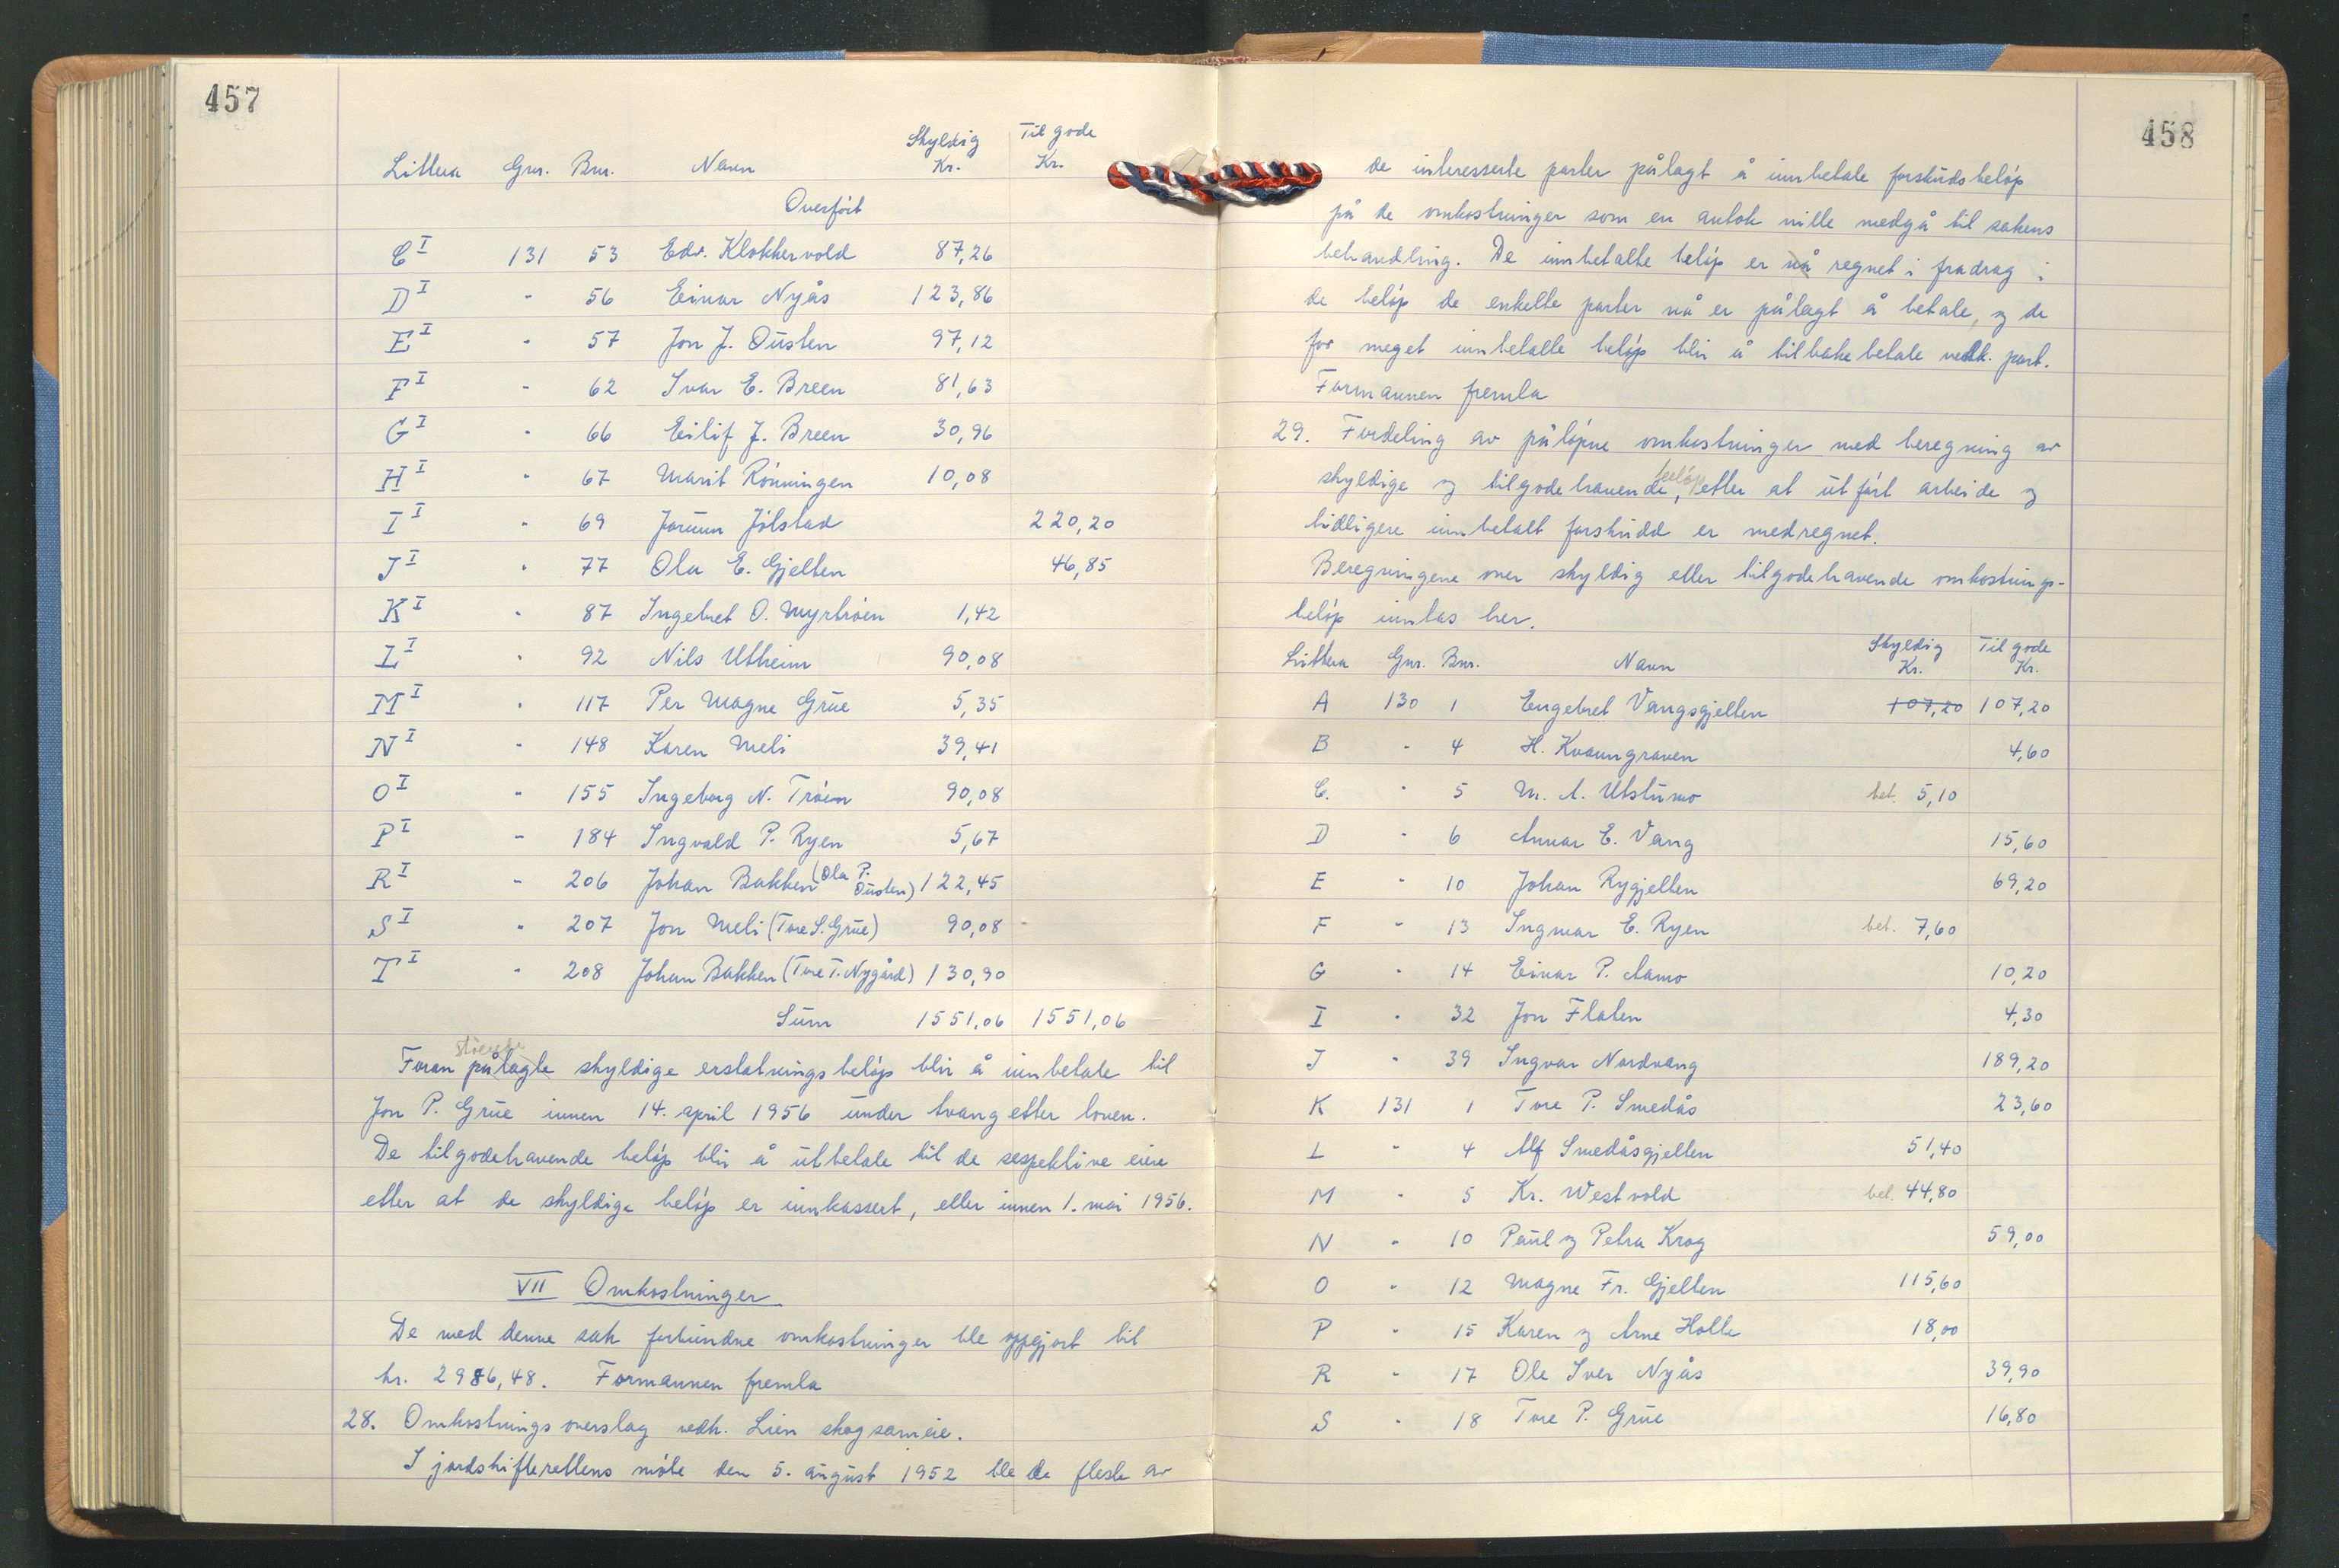 457
Littera Gnr. Bnr. Navn Skyldig Kr. Til gode Kr.
Overført
C I 131 53 Edv. Klokkervold 87,26
D I " 56 Einar Nyås 123,86
E I " 57 Jon J. Ousten 97,12
F I " 62 Ivar E. Breen 81,63
G I " 66 Eilif J. Breen 30,96
H I " 67 Marit Rønningen 10,08
I I " 69 Jorunn Jølstad 220,20
J I " 77 Ola E. Gjelten 46,85
K I " 87 Ingebret O. Myrtrøen 1,42
L I " 92 Nils Utheim 90,08
M I " 117 Per Magne Grue 5,35
N I " 148 Karen Meli 39,41
O I " 155 Ingeborg N. Trøen 90,08
P I " 184 Ingvald P. Ryen 5,67
R I " 206 Johan Bakken (Ola P. Ousten) 122,45
S I " 207 Jon Meli (Tore S. Grue) 90,08
T I " 208 Johan Bakken (Tore T. Nygård) 130,90
Sum 1551,06 1551,06
Foran pålagte skyldige erstatningsbeløp blir å innbetale til
Jon P. Grue innen 14. april 1956 under tvang etter loven.
De tilgodehavende beløp blir å utbetale til de respektive eiere
etter at de skyldige beløp er innkassert, eller innen 1. mai 1956.
VII Omkostninger
De med denne sak forbundne omkostninger ble oppgjort til
kr. 2986,48. Formannen fremla
28. Omkostningsoverslag vedk. Lien skogsameie.
I jordskifterettens møte den 5. august 1952 ble de fleste av
458
de interesserte parter pålagt å innbetale forskudsbeløp
på de omkostninger som en antok ville medgå til sakens
behandling. De innbetalte beløp er nå regnet i fradrag i
de beløp de enkelte parter nå er pålagt å betale, og de
for meget innbetalte beløp blir å tilbakebetale vedk. part.
Formannen fremla
29. Fordeling av påløpne omkostninger med beregning av
skyldige og tilgodehavende beløp, etter at utført arbeide og
tidligere innbetalt forskudd er medregnet.
Beregningene over skyldig eller tilgodehavende omkostnings-
beløp inntas her.
Littera Gnr. Bnr. Navn Skyldig Kr. Til gode Kr.
A 130 1 Engebret Vangsgjelten 107,20 107,20
B " 4 H. Kvanngraven 4,60
C. " 5 M. A. Utstumo bet. 5,10
D " 6 Annar E. Vang 15,60
E " 10 Johan Rygjelten 69,20
F " 13 Ingmar E. Ryen bet. 7,60
G " 14 Einar P. Aamo 10,20
I " 32 Jon Flaten 4,30
J " 39 Ingvar Nordvang 189,20
K 131 1 Tore P. Smedås 23,60
L " 4 Alf Smedåsgjelten 51,40
M " 5 Kr. Westvold bet. 44,80
N " 10 Paul og Petra Krog 59,00
O " 12 Magne Fr. Gjelten 115,60
P " 15 Karen og Arne Holte 18,00
R " 17 Ole Iver Nyås 39,90
S " 18 Tore P. Grue 16,80